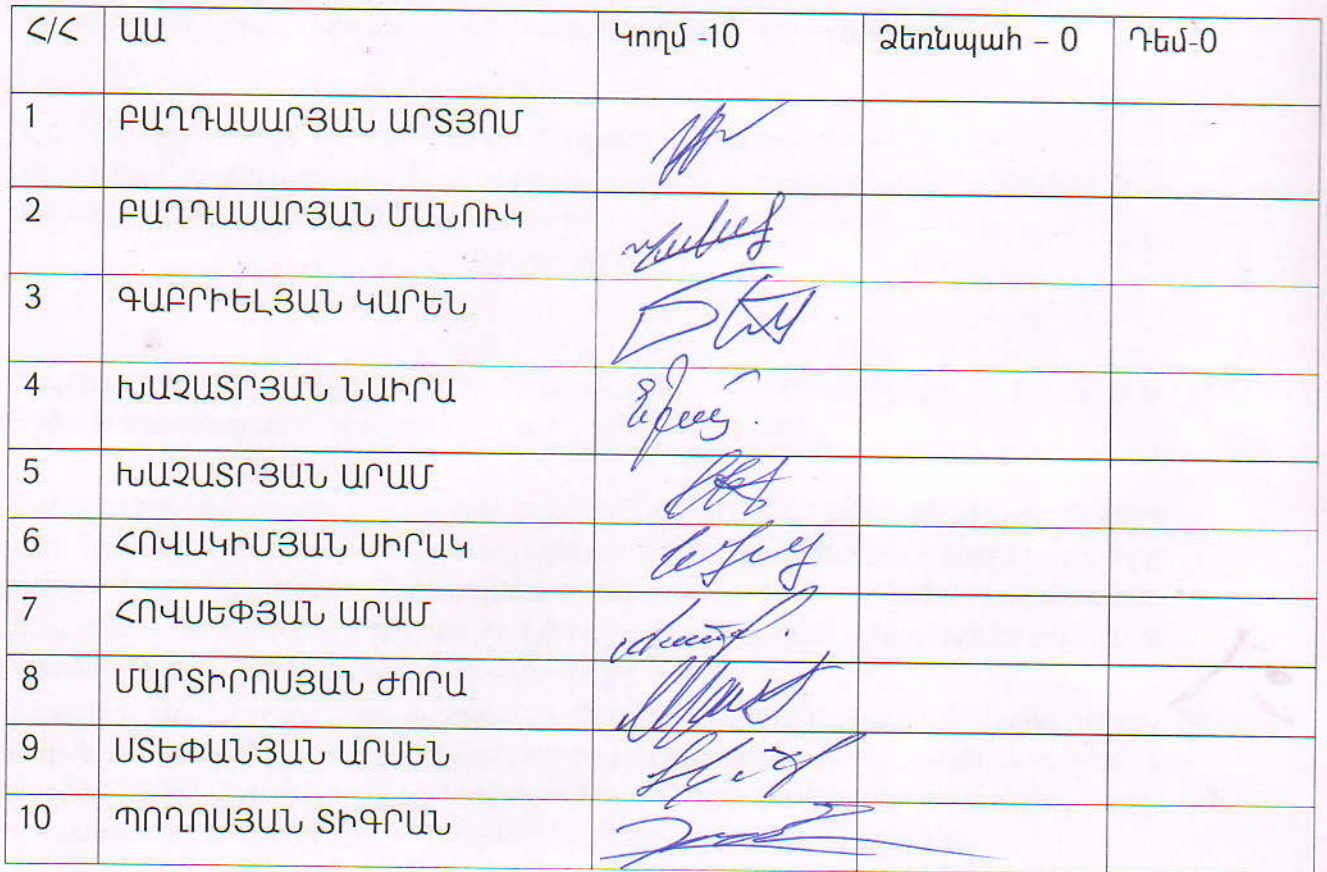 Հ/Հ ԱԱ Կողմ -10 Ձեռնպահ – 0 Դեմ-0
1 ԲԱՂԴԱՍԱՐՅԱՆ ԱՐՏՅՈՄ
2 ԲԱՂԴԱՍԱՐՅԱՆ ՄԱՆՈՒԿ
3 ԳԱԲՐԻԵԼՅԱՆ ԿԱՐԵՆ
4 ԽԱՉԱՏՐՅԱՆ ՆԱԻՐԱ
5 ԽԱՉԱՏՐՅԱՆ ԱՐԱՄ
6 ՀՈՎԱԿԻՄՅԱՆ ՍԻՐԱԿ
7 ՀՈՎՍԵՓՅԱՆ ԱՐԱՄ
8 ՄԱՐՏԻՐՈՍՅԱՆ ԺՈՐԱ
9 ՍՏԵՓԱՆՅԱՆ ԱՐՍԵՆ
10 ՊՈՂՈՍՅԱՆ ՏԻԳՐԱՆ